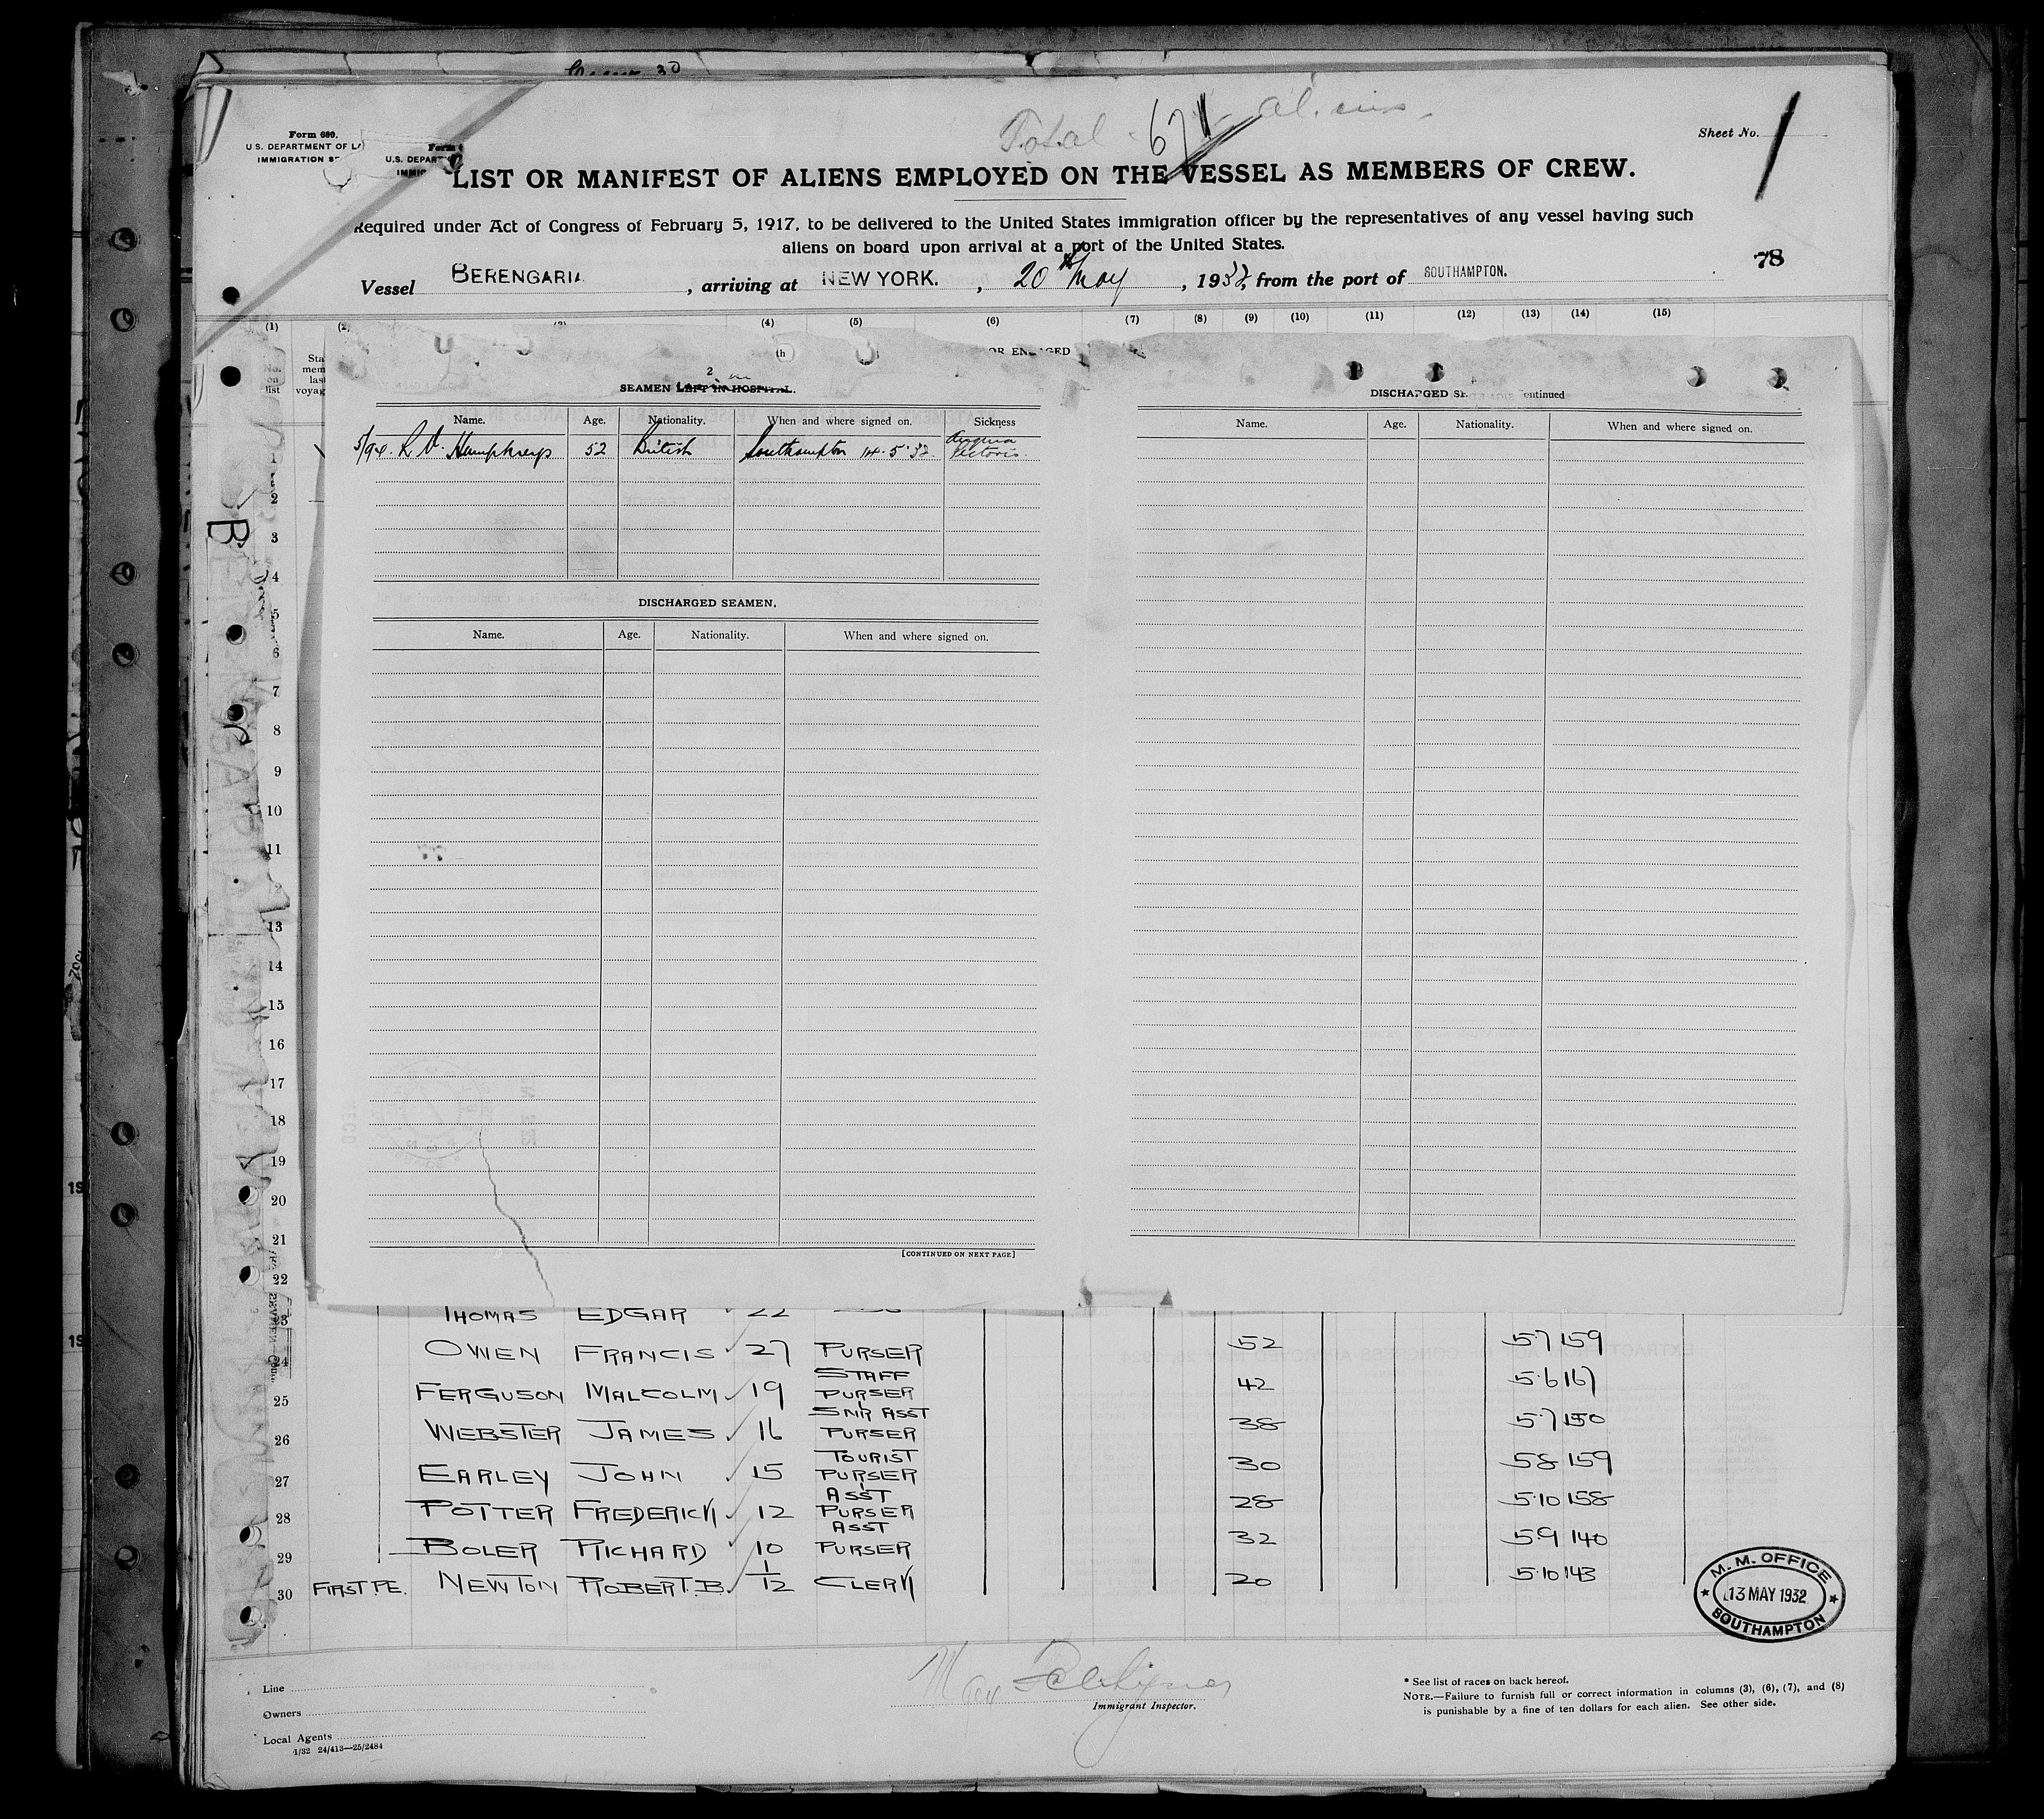 Form 680.
U. S. DEPARTMENT OF
IMMIGRATION
Total 671 aliens
Sheet No. 1
LIST OR MANIFEST OF ALIENS EMPLOYED ON THE VESSEL AS MEMBERS OF CREW.
Required under Act of Congress of February 5, 1917, to be delivered to the United States immigration officer by the representatives of any vessel having such
aliens on board upon arrival at a port of the United States.
78
Vessel BERENGARIA, arriving at NEW YORK., 20th May, 1932, from the port of SOUTHAMPTON.
(1) (2) (3) (4) (5) (6) (7) (8) (9) (10) (11) (12) (13) (14) (15)
2
SEAMEN LEFT IN HOSPITAL.
Name. Age. Nationality. When and where signed on. Sickness
5/94. Humphreys 52 British Southampton 14.5.32 Angina Pectoris.
DISCHARGED SEAMEN.
Name. Age. Nationality. When and where signed on.
[CONTINUED ON NEXT PAGE]
DISCHARGED SE ontinued
Name. Age. Nationality. When and where signed on.
2
3
4
5
6
7
8
9
10
11
13
14
15
16
17
18
19
20
21
22
23 THOMAS EDGAR 22
24 OWEN FRANCIS 27 PURSER 52 5.7 159
25 FERGUSON MALCOLM 19 STAFF PURSER 42 5.6 167
26 WEBSTER JAMES 16 SNR ASST PURSER 38 5.7 150
27 EARLEY JOHN 15 TOURIST PURSER 30 5.8 159
28 POTTER FREDERICK 12 ASST PURSER 28 5.10 158
29 BOLER RICHARD 10 ASST PURSER 32 5.9 140
30 FIRST.P.E. NEWTON ROBERT.B. 1/12 CLERK 20 5.10 143
M. M. OFFICE
13 MAY 1932
SOUTHAMPTON
Line
Owners
Local Agents
1/32 24/413—25/2484
Immigrant Inspector.
* See list of races on back hereof.
NOTE.—Failure to furnish full or correct information in columns (3), (6), (7), and (8)
is punishable by a fine of ten dollars for each alien. See other side.